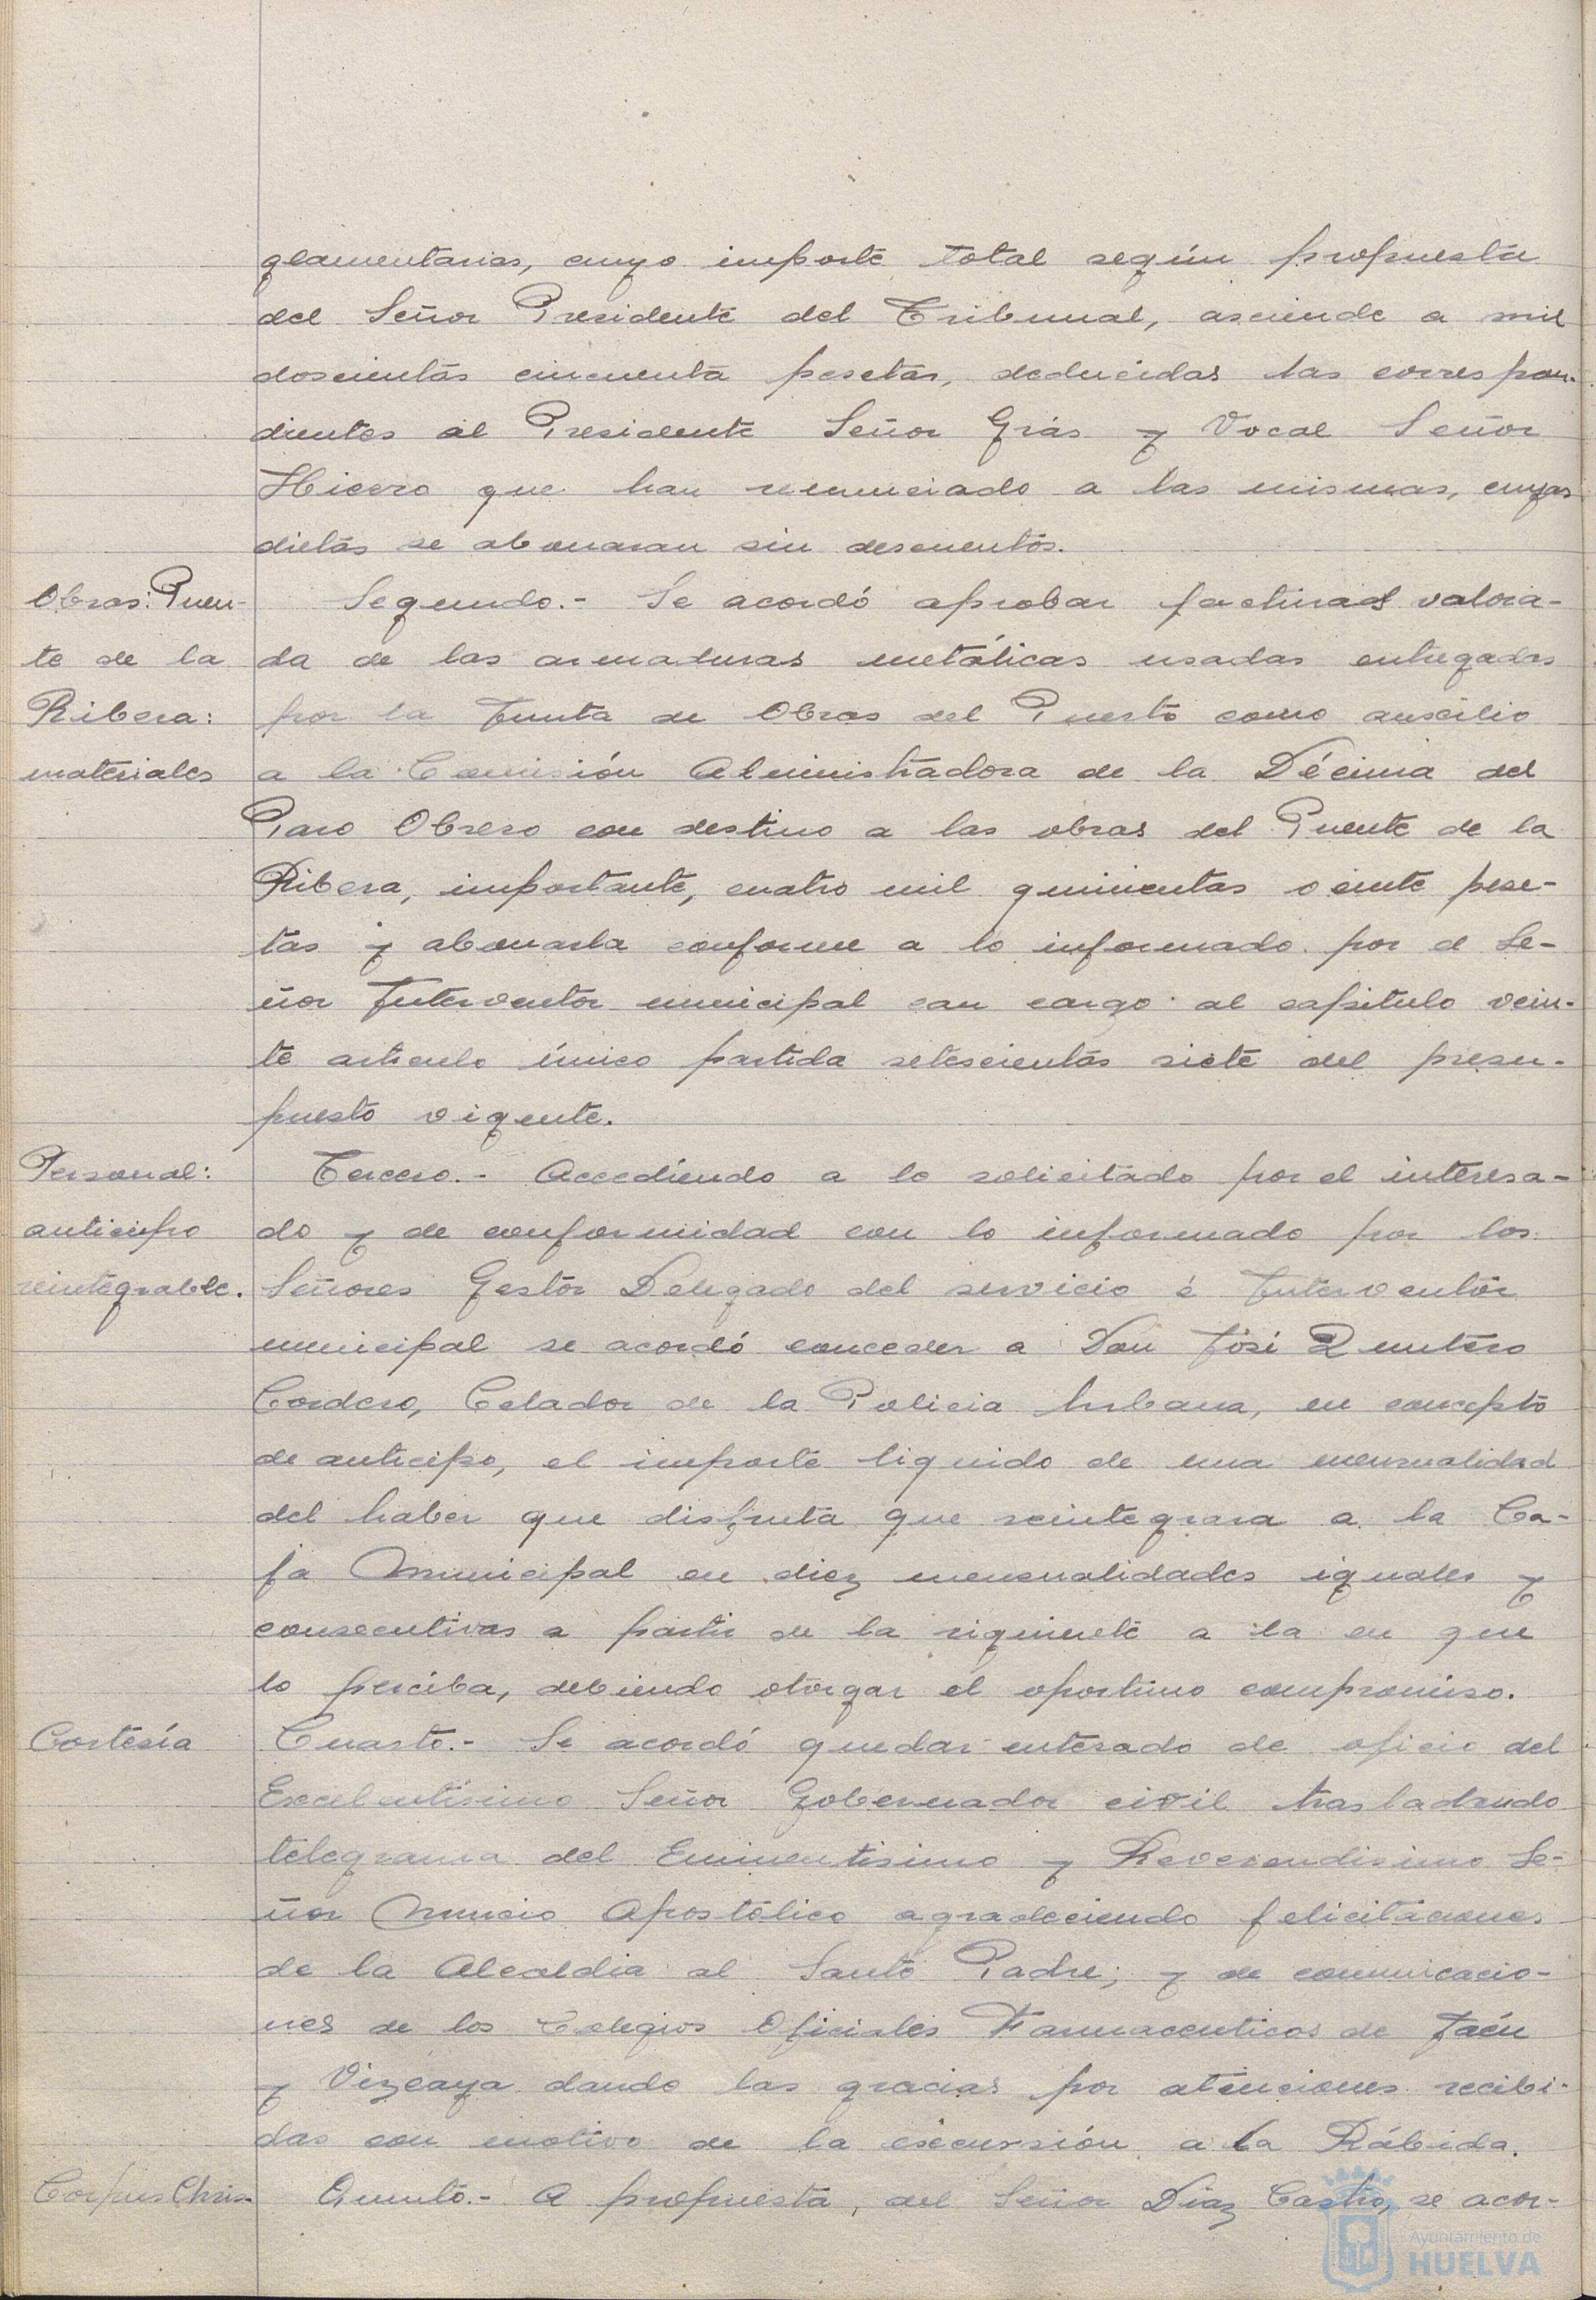 glamentarias, cuyo importe total según propuesta
del Señor Presidente del Tribunal, asciende a mil
doscientas cincuenta pesetas, deducidas las correspon-
dientes al Presidente Señor Grás y Vocal Señor
que han renunciado a las mismas, cuyas
dietas se abonaran sin descuentos.
Obras: Puen-
te de la
Ribera:
materiales
Segundo.- Se acordó aprobar factura valora-
da de las armaduras metálicas usadas entregadas
por la Junta de Obras del Puerto como auxilio
a la Comisión Administradora de la Décima del
Paro Obrero con destino a las obras del Puente de la
Ribera, importante, cuatro mil quinientas veinte pese-
tas y abonarla conforme a lo informado por el Se-
ñor Interventor municipal con cargo al capitulo vein-
te articulo único partida setescientas siete del presu-
puesto vigente.
Personal:
anticipo
reintegrable.
Tercero.- Accediendo a lo solicitado por el interesa-
do y de conformidad con lo informado por los
Señores Gestor Delegado del servicio é Interventor
municipal se acordó conceder a Don José Quintero
Cordero, Celador de la Policia Urbana, en concepto
de anticipo, el importe liquido de una mensualidad
del haber que disfruta que reintegrara a la Ca-
ja Municipal en diez mensualidades iguales y
consecutivas a partir de la siguiente a la en que
lo perciba, debiendo otorgar el oportuno compromiso.
Cortesía
Cuarto.- Se acordó quedar enterado de oficio del
Excelentisimo Señor Gobernador civil trasladando
telegrama del Eminentisimo y Reverendisimo Se-
ñor Nuncio Apostólico agradeciendo felicitaciones
de la Alcaldia al Santo Padre; y de comunicacio-
nes de los Colegios Oficiales Farmaceuticos de Jaén
y Vizcaya dando las gracias por atenciones recibi-
das con motivo de la excursión a la Rábida.
Corpus Chris-
Quinto.- A propuesta, del Señor Díaz Castro, se acor-
Ayuntamiento de
HUELVA